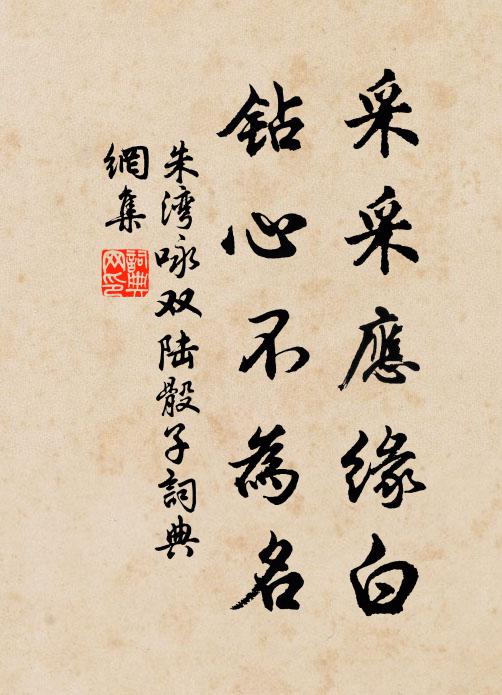 采采應緣白
鉆心不為名
朱灣咏双陆骰子詞典
網集
詞典
网印